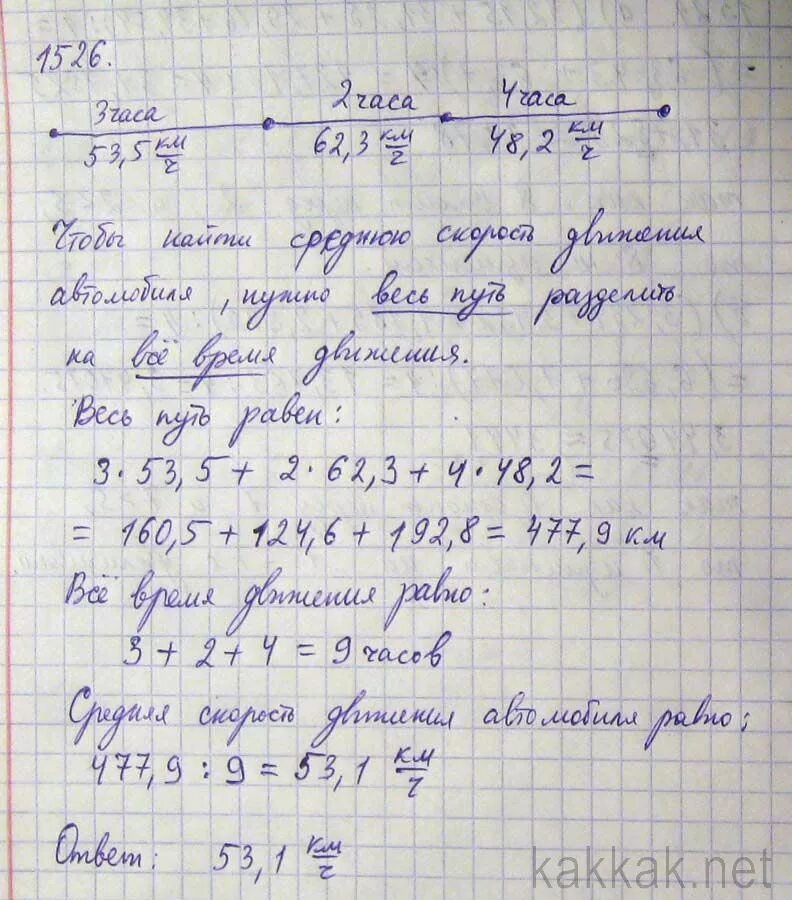 1526.
3 часа 2 часа 4 часа
53,5 км/ч 62,3 км/ч 48,2 км/ч
Чтобы найти среднюю скорость движения
автомобиля, нужно весь путь разделить
на всё время движения.
Весь путь равен:
3 · 53,5 + 2 · 62,3 + 4 · 48,2 =
= 160,5 + 124,6 + 192,8 = 477,9 км
Всё время движения равно:
3 + 2 + 4 = 9 часов
Средняя скорость движения автомобиля равно:
477,9 : 9 = 53,1 км/ч
Ответ: 53,1 км/ч
kakkak.net